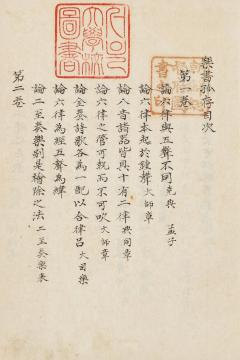 樂書孤存目次
第一卷
論六律與五聲不同 堯典 孟子
論六律本起於鍾聲 大師章
論八音諸器皆具十有二律 典同章
論六律之管可執而不可吹 大師章
論金奏詩歌各為一配以合律呂 大司樂
論六律為經五聲為緯
論二至奏樂別是禬除之法 二至奏樂表
第二卷